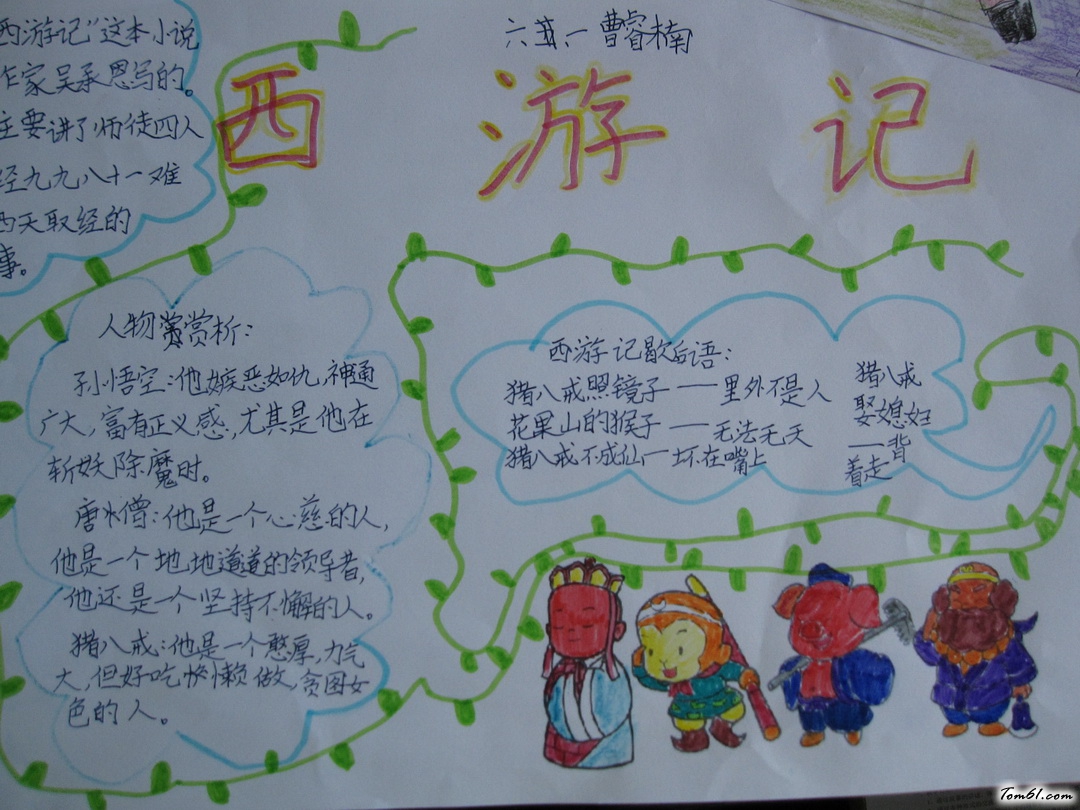 西游记"这本小说
作家吴承恩写的。
主要讲了师徒四人
经九九八十一难
西天取经的
事。
六 一 曹睿楠
西游记
人物赏析:
孙悟空:他嫉恶如仇,神通
广大,富有正义感,尤其是他在
斩妖除魔时。
唐僧:他是一个心慈的人,
他是一个地地道道的领导者,
他还是一个坚持不懈的人。
猪八戒:他是一个憨厚,力气
大,但好吃懒做,贪图女
色的人。
西游记歇后语:
猪八戒照镜子——里外不是人
花果山的猴子——无法无天
猪八戒不成仙一坏在嘴上
猪八戒
娶媳妇
——背
着走
Tom61.com